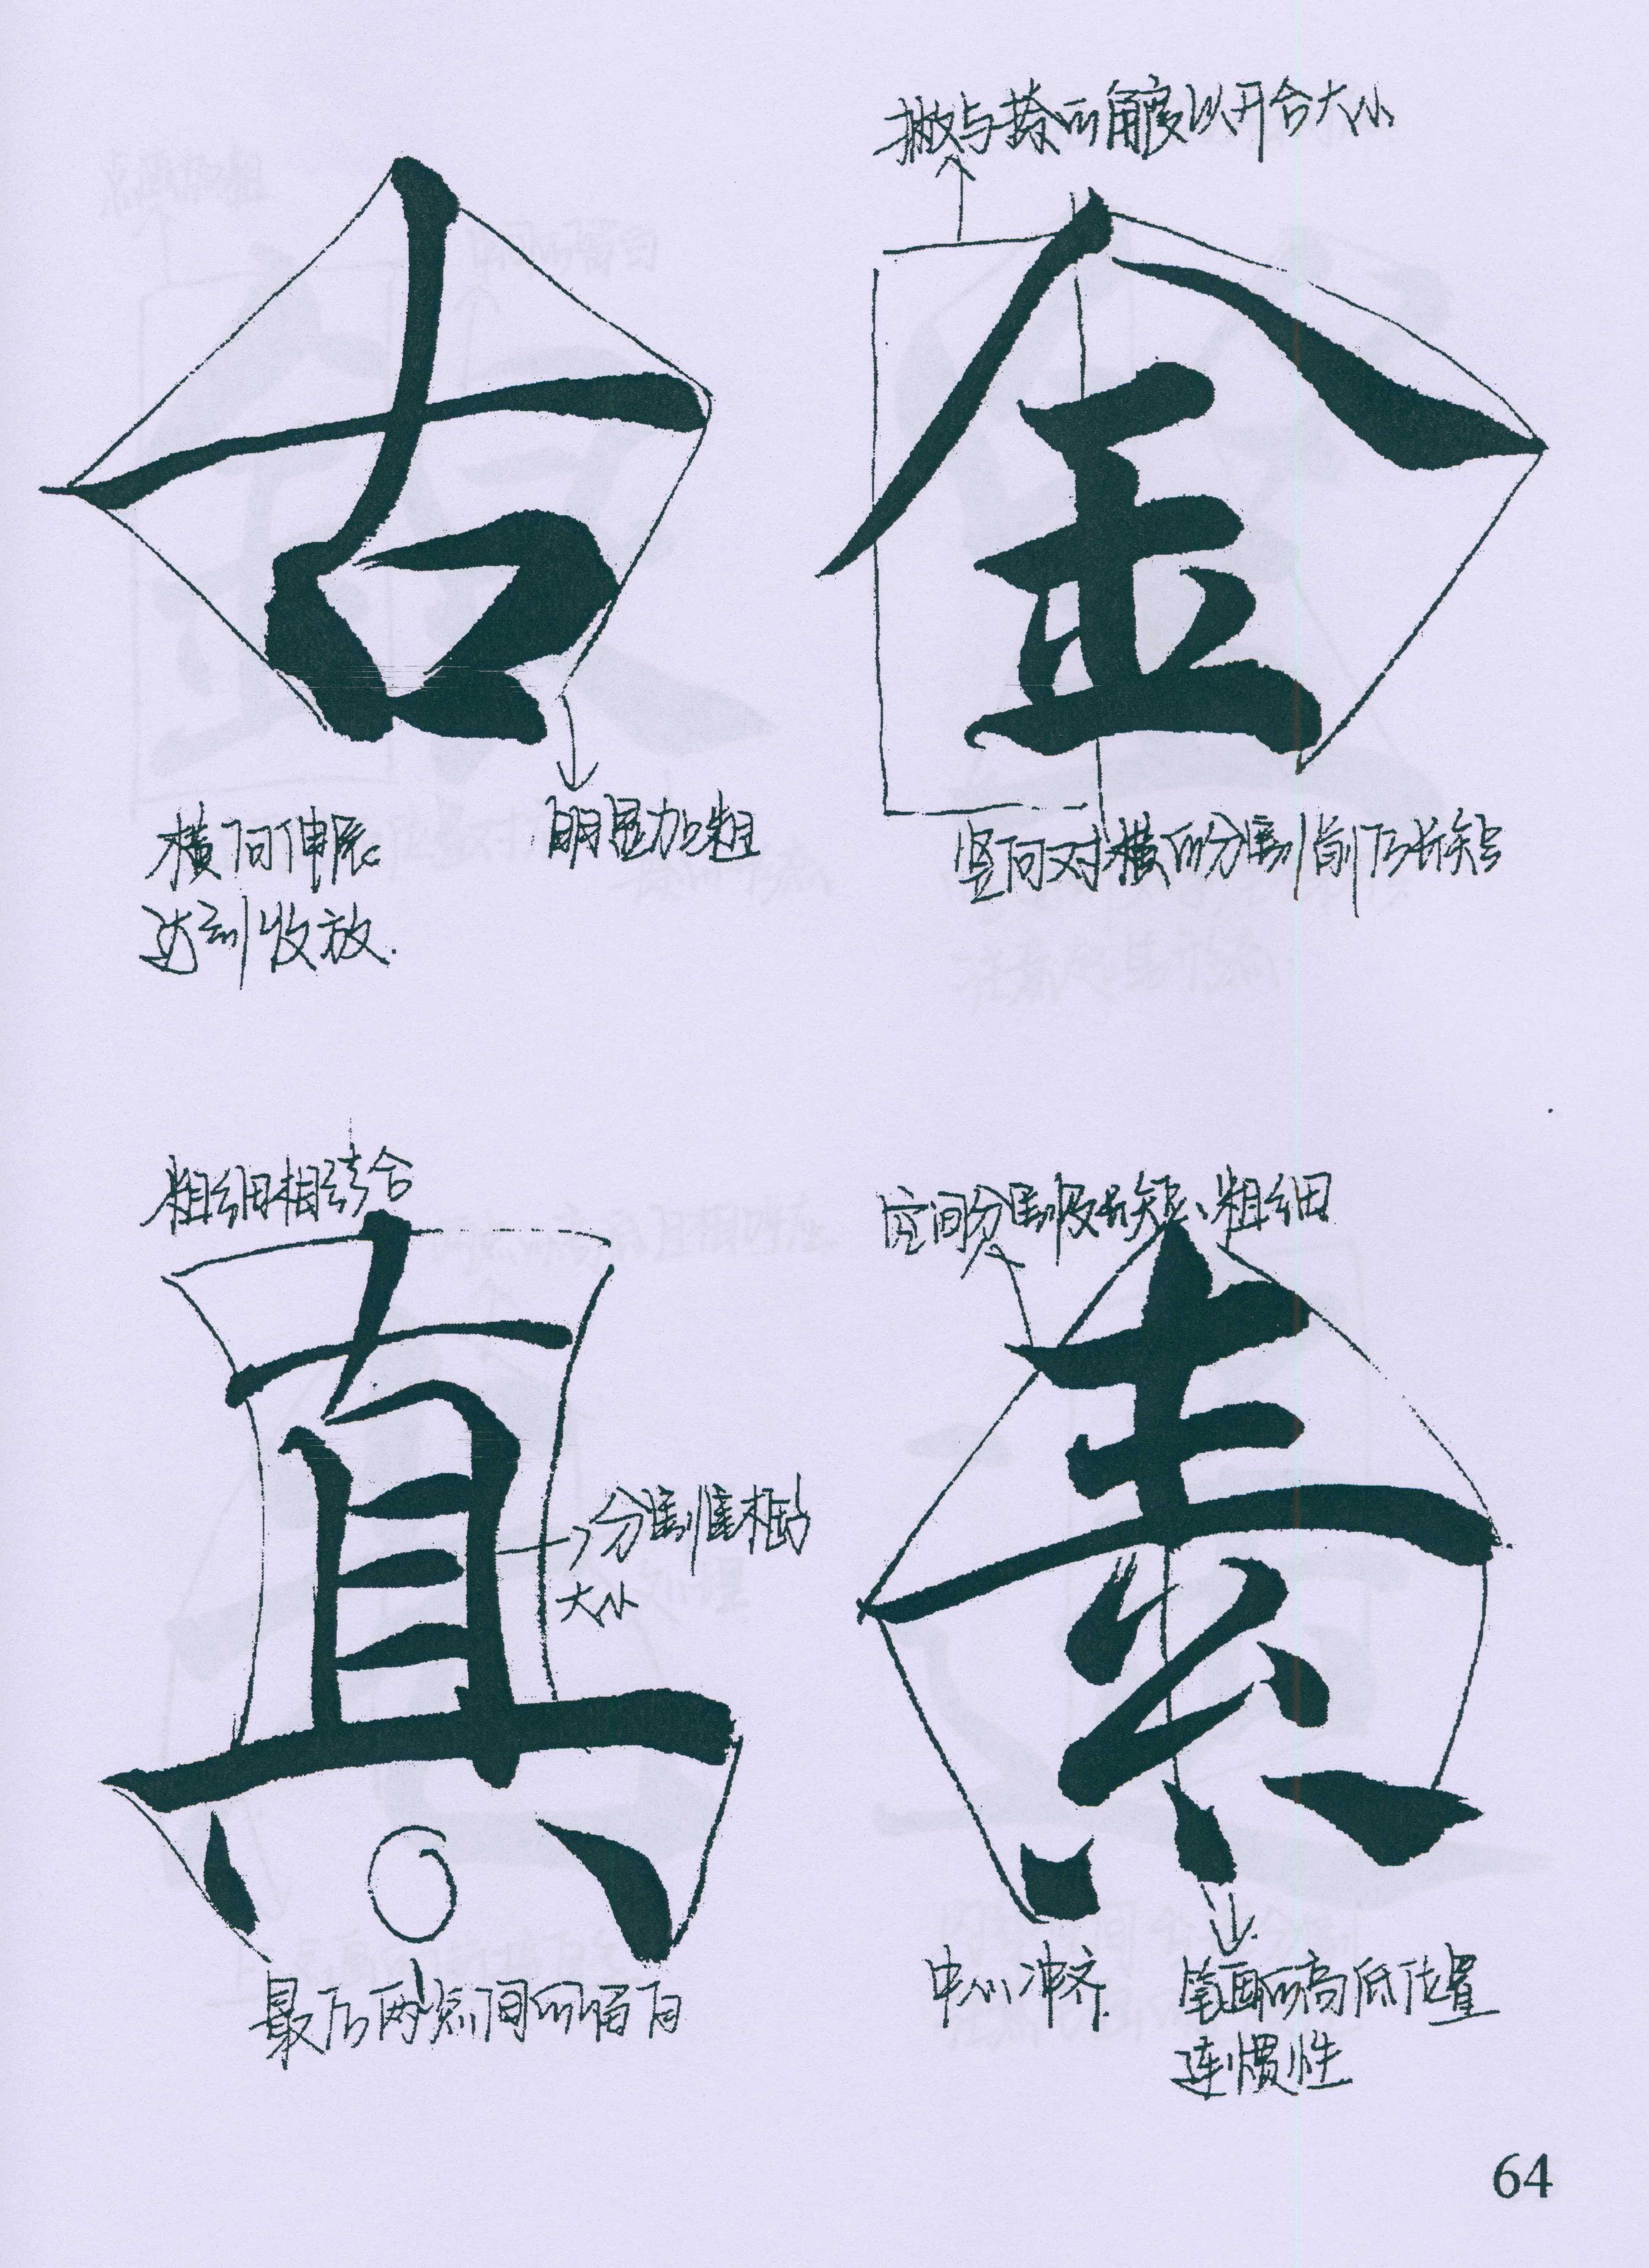 撇与捺的角度以开合大小
古
金
横向伸展
达到收放.
明显加粗
竖向对横的分割前后长短
粗细相结合
空间分割及长短、粗细
真
素
分割框
大小
最后两点间的留白
中心冲齐.
笔画的高低位置
连惯性
64